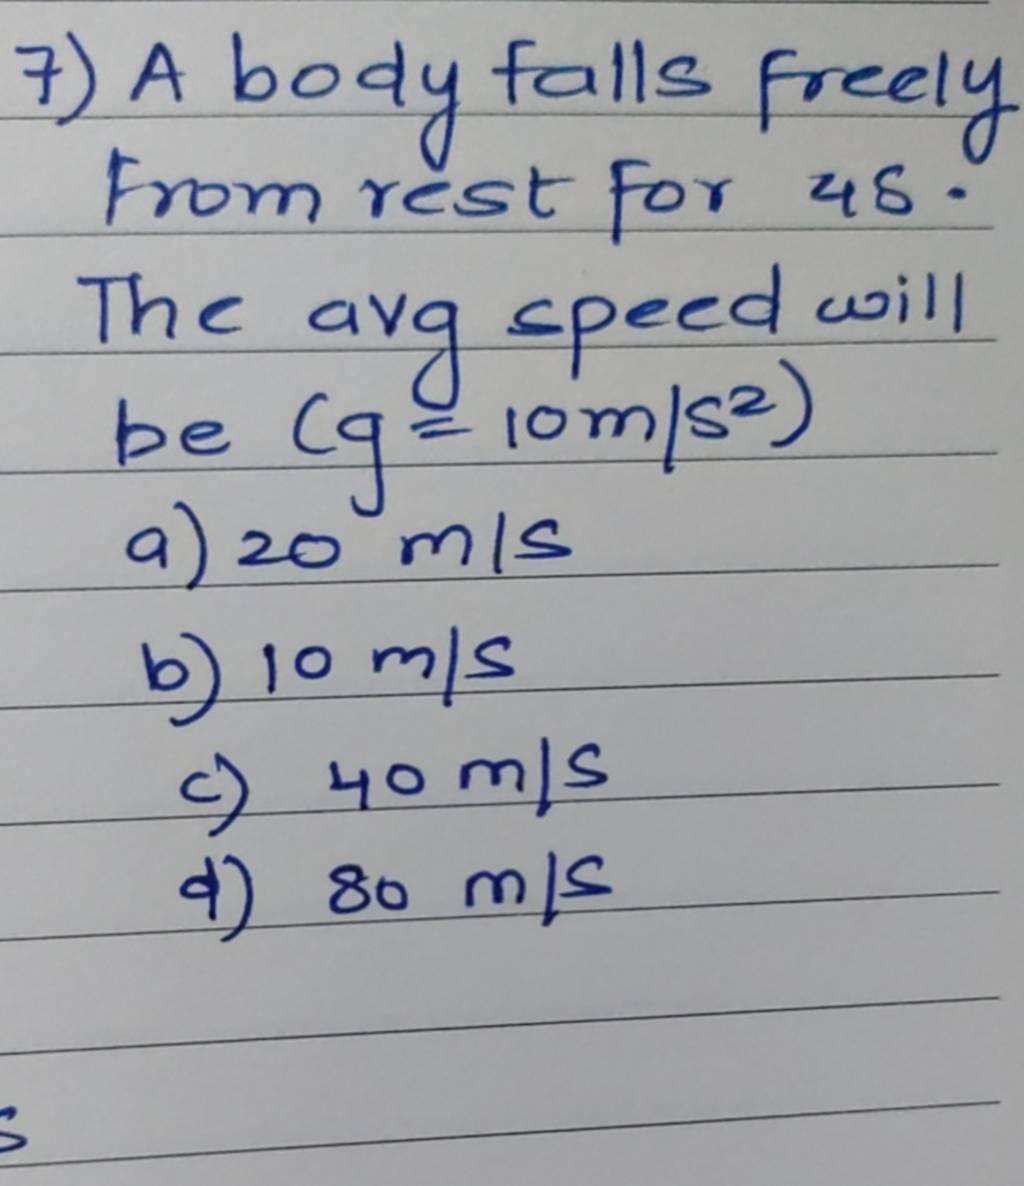 7) A body falls freely
from rest for 4s.
The avg speed will
be (g = 10m/s²)
a) 20 m/s
b) 10 m/s
c) 40 m/s
d) 80 m/s
s